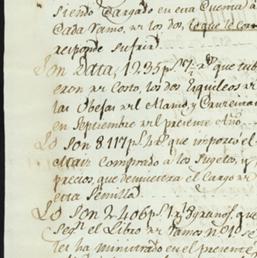 siendo Cargado en esta Cuenta a
Cada Ramo, los dos, lo que le Cor
responde sufrir
Son Data, 1235 p.s que tubi
eron de Costo, los dos Esquileos de
las Obejas del Alamo, y
en Septiembre del presente Año.
Yo Son 8117 p.s que importó el
Maiz Comprado a los Sugetos, y
precios, que demuestra el Cargo de
esta Semilla
Yo Son 2.406 p.s 3 granos, que
Seg.n el Libro de Ramos n.
ha ministrado en el presente